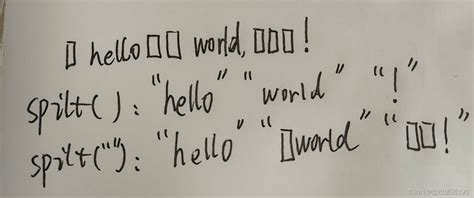 ▯ hello ▯▯ world, ▯▯▯!
spilt(): "hello" "world" "!"
spilt(""): "hello" "▯world" "▯▯!"